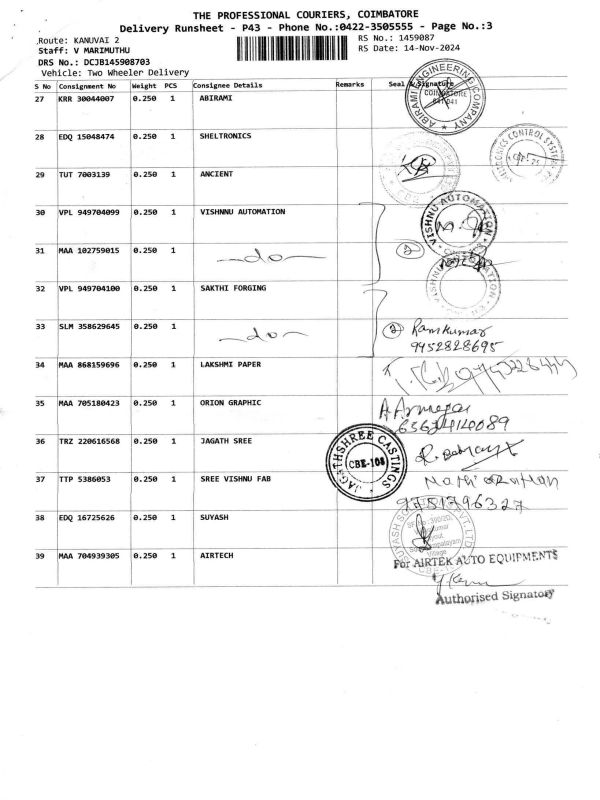 THE PROFESSIONAL COURIERS, COIMBATORE
Delivery Runsheet - P43 - Phone No.:0422-3505555 - Page No.:3
Route: KANUVAI 2
RS No.: 1459087
Staff: V MARIMUTHU
RS Date: 14-Nov-2024
DRS No.: DCJB145908703
Vehicle: Two Wheeler Delivery
S No Consignment No Weight PCS Consignee Details Remarks Seal & Signature
27 KRR 30044007 0.250 1 ABIRAMI
ABIRAMI ENGINEERING COMPANY
COIMBATORE
641 041
28 EDQ 15048474 0.250 1 SHELTRONICS
CONTROL SYSTEM
29 TUT 7003139 0.250 1 ANCIENT
30 VPL 949704099 0.250 1 VISHNNU AUTOMATION
VISHNU AUTOMATION
31 MAA 102759015 0.250 1 -do- 2
32 VPL 949704100 0.250 1 SAKTHI FORGING
33 SLM 358629645 0.250 1 -do- 2 Ramkumar
9952828695
34 MAA 868159696 0.250 1 LAKSHMI PAPER
35 MAA 705180423 0.250 1 ORION GRAPHIC
36 TRZ 220616568 0.250 1 JAGATH SREE
JAGATHSHREE CASTINGS
CBE-108
37 TTP 5386053 0.250 1 SREE VISHNU FAB
9751796327
38 EDQ 16725626 0.250 1 SUYASH
39 MAA 704939305 0.250 1 AIRTECH
For AIRTEK AUTO EQUIPMENTS
Authorised Signatory